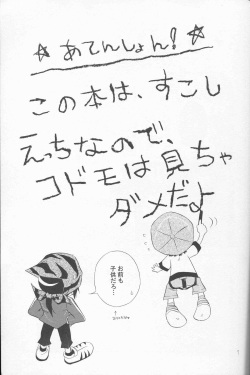 ☆あてんしょん!☆
この本は、すこし
えっちなので、
コドモは見ちゃ
ダメだよ
お前も
子供だろ…